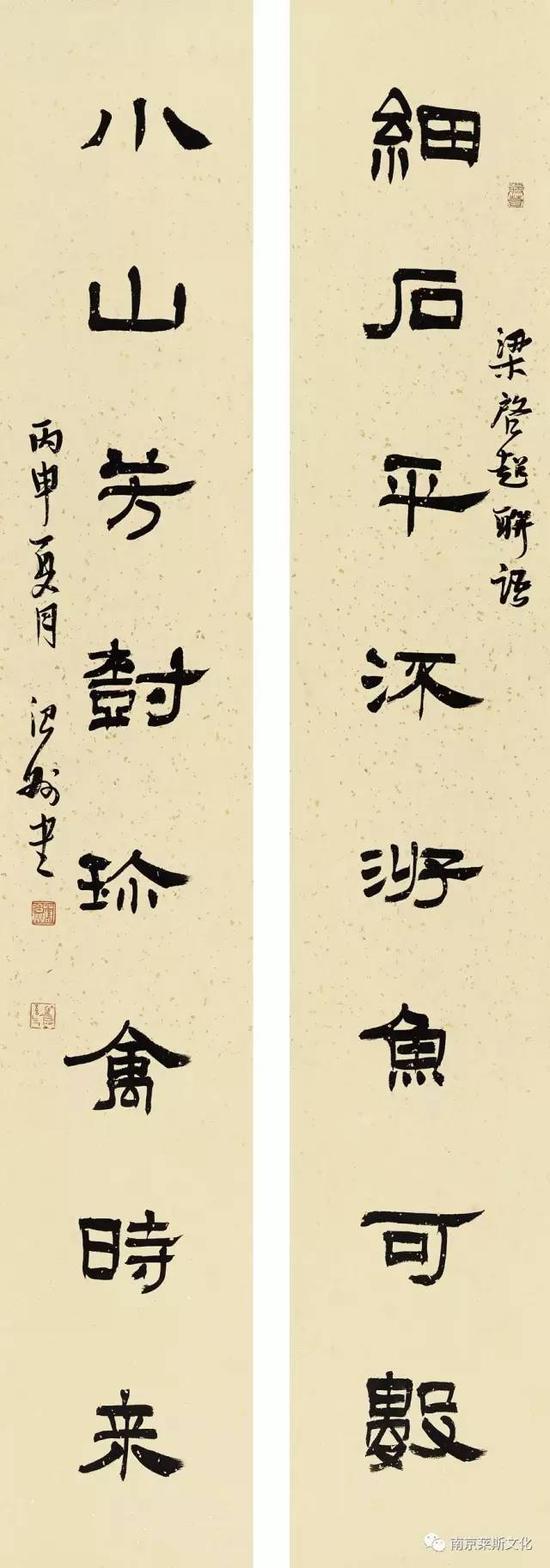 梁啓超聯語
細石平流游魚可數
小山芳樹珎禽時来
丙申夏月 書
南京莱斯文化